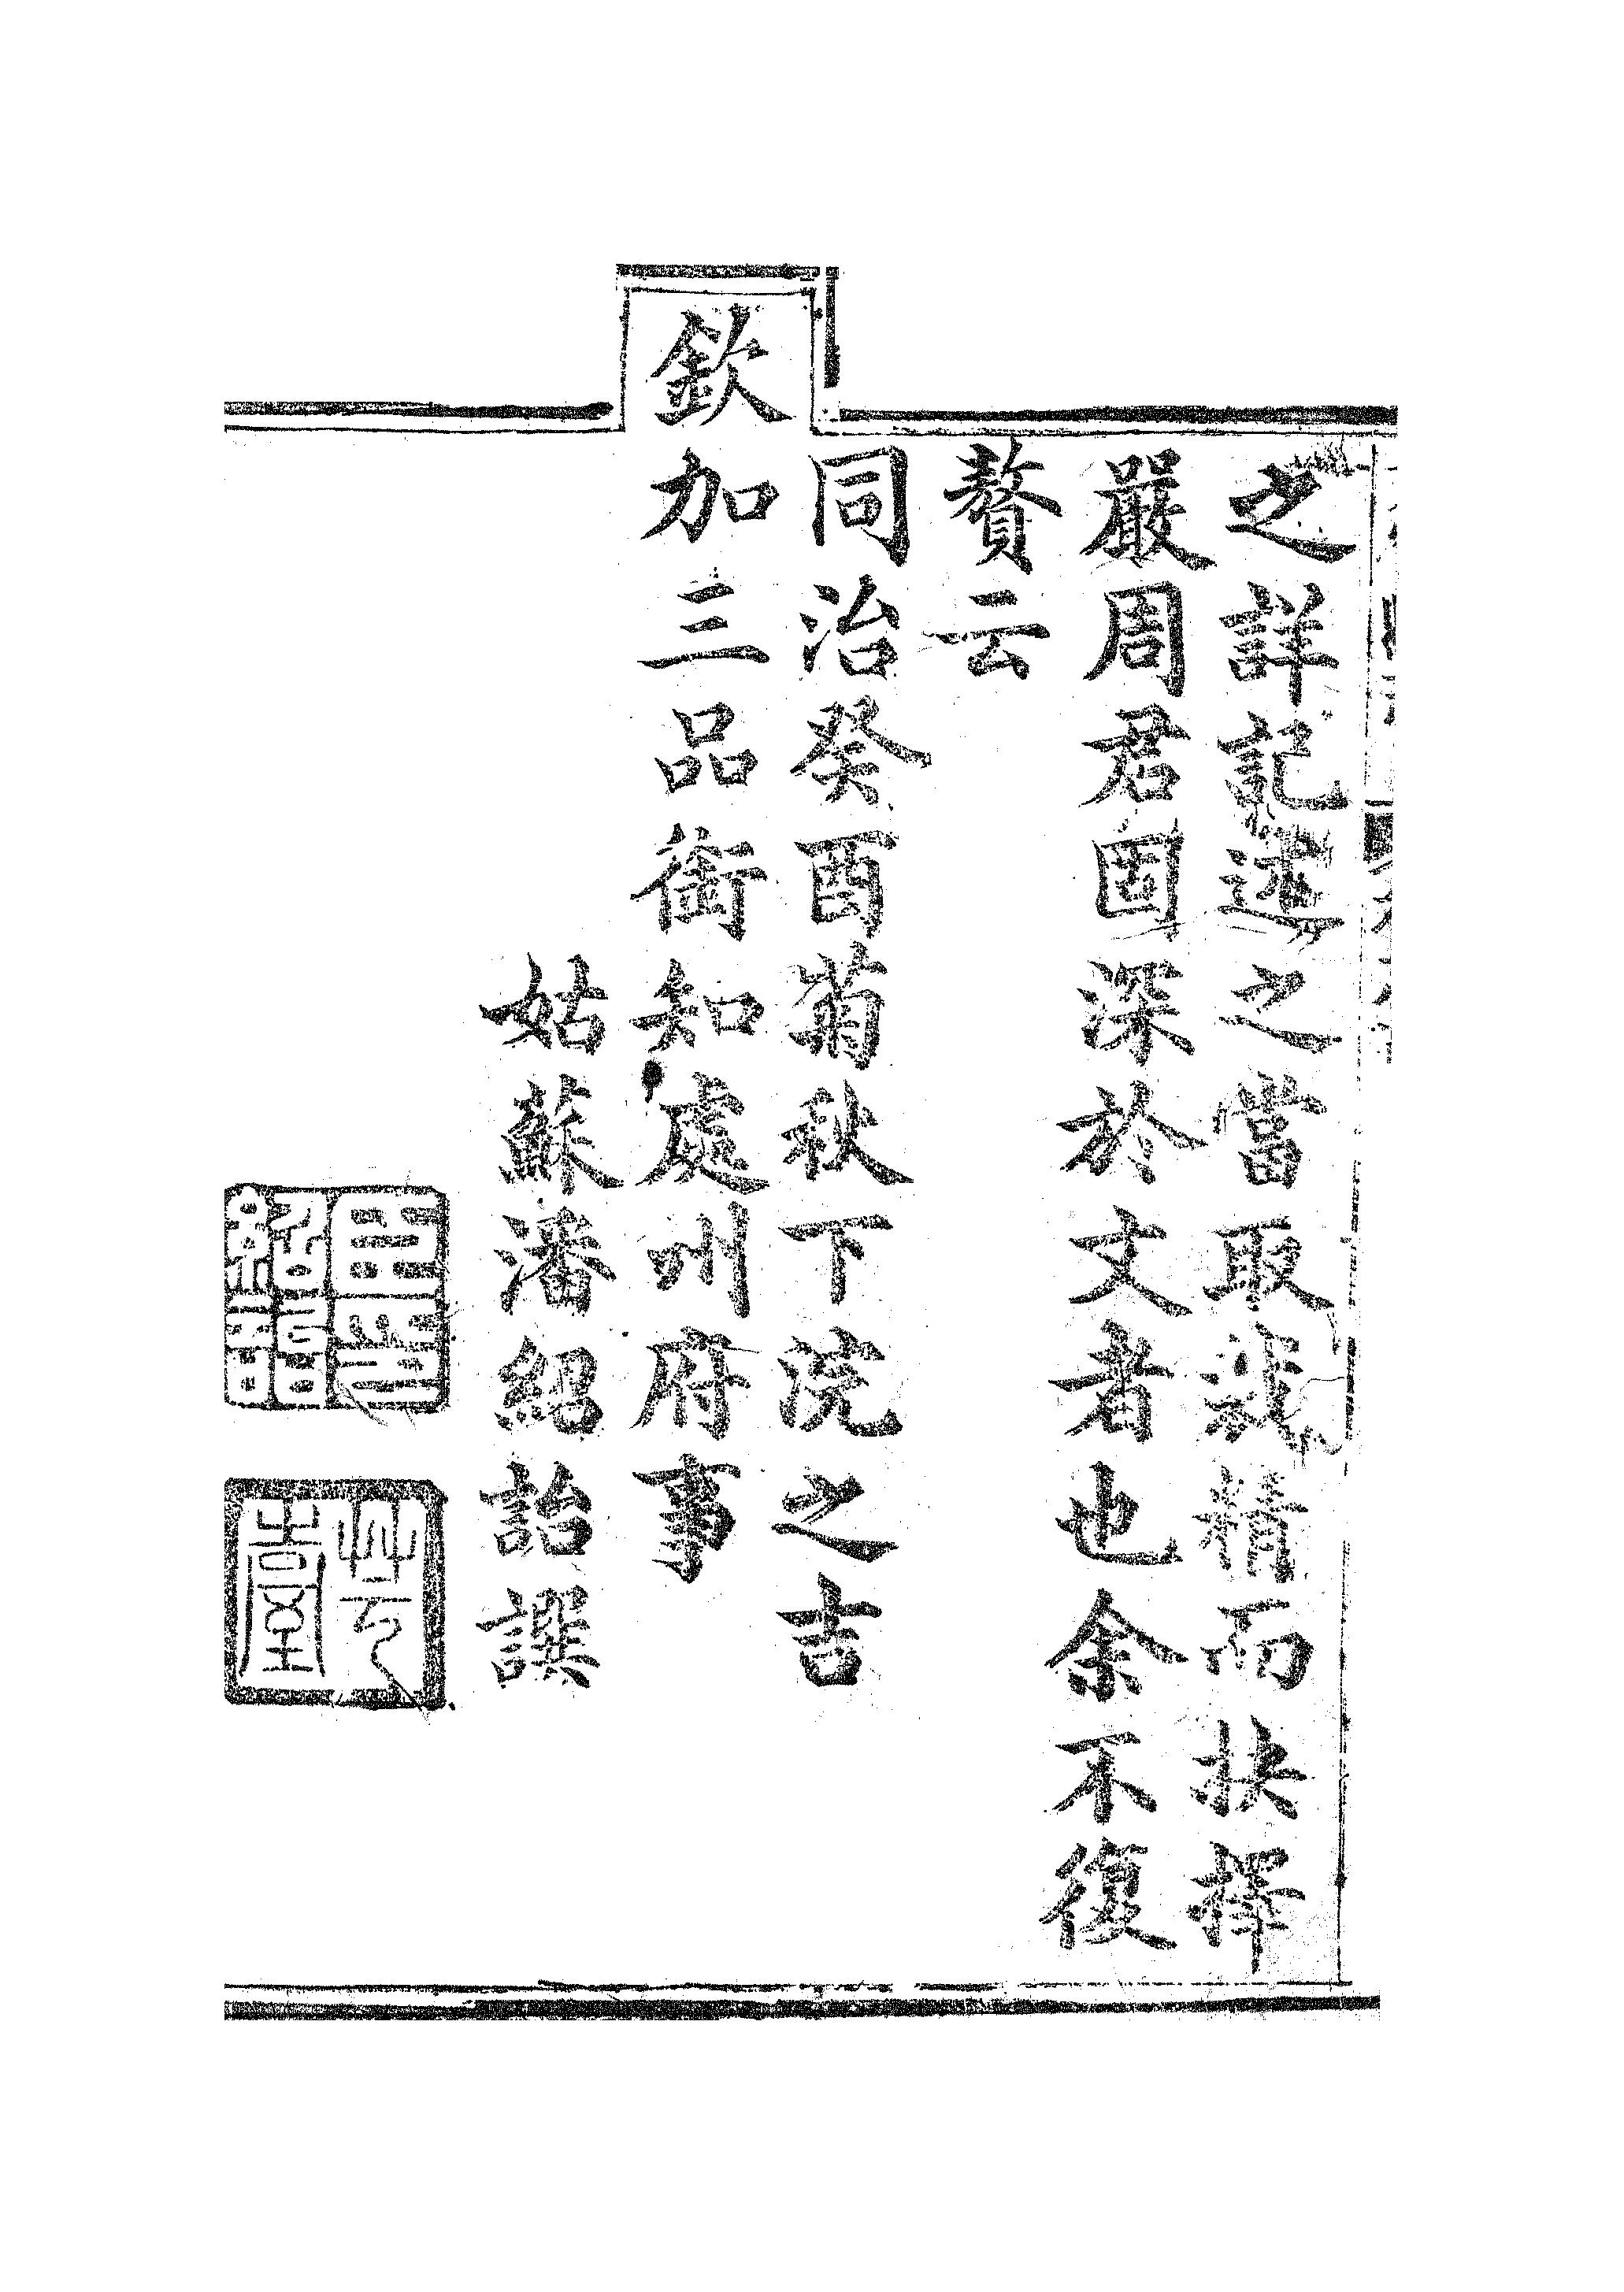 之詳記述之當取裁精而抉擇
嚴周君固深於文者也余不復
贅云
同治癸酉菊秋下浣之吉
欽加三品銜知處州府事
姑蘇潘紹詒譔
臣潘紹詒